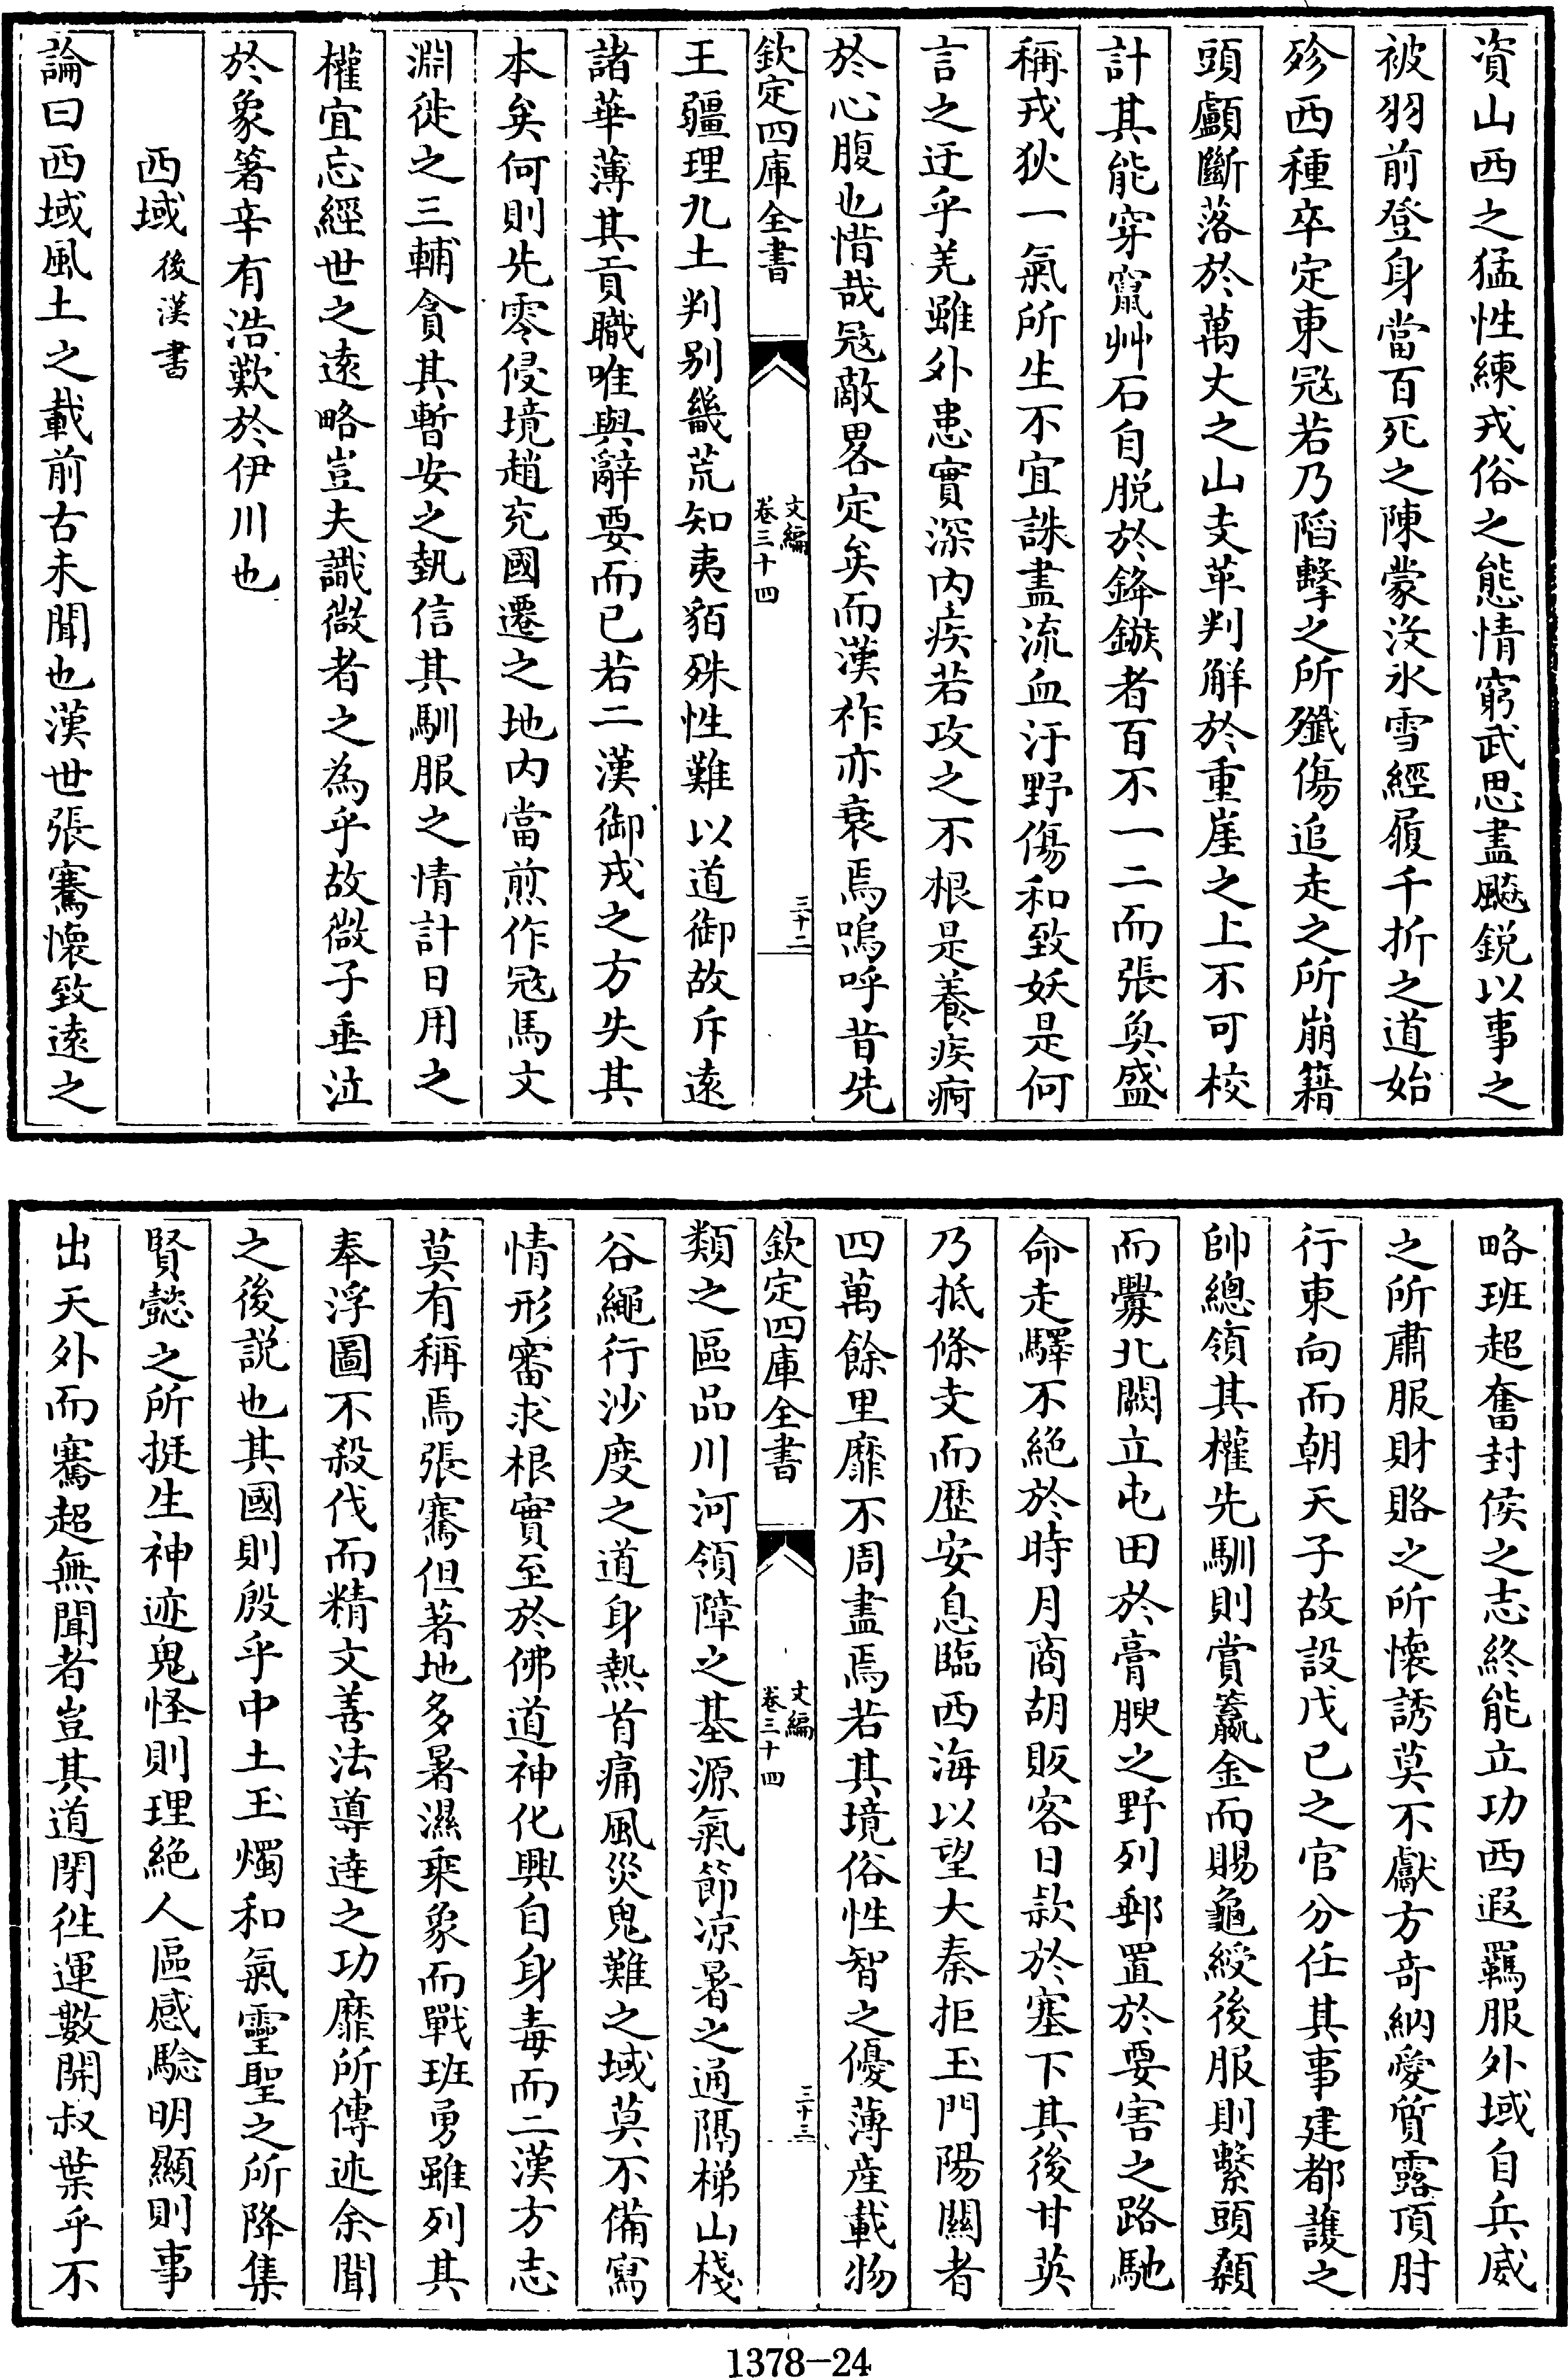 資山西之猛性練戎俗之態情窮武思盡飈鋭以事之
被羽前登身當百死之陳蒙沒氷雪經履千折之道始
殄西種卒定東冦若乃䧟擊之所殲傷追走之所崩籍
頭顱斷落於萬丈之山支革判解於重崖之上不可校
計其能穿竄艸石自脱於鋒鏃者百不一二而張奐盛
稱戎狄一氣所生不宜誅盡流血汙野傷和致妖是何
言之迂乎羌雖外患實深内疾若攻之不根是養疾痾
於心腹也惜哉冦敵畧定矣而漢祚亦衰焉嗚呼昔先
欽定四庫全書
文編
卷三十四
三十二
王疆理九土判别畿荒知夷貊殊性難以道御故斥遠
諸華薄其貢職唯與辭要而已若二漢御戎之方失其
本矣何則先零侵境趙充國遷之地内當煎作冦馬文
淵徙之三輔貪其暫安之執信其馴服之情計日用之
權宜忘經世之遠略豈夫識微者之為乎故微子垂泣
於象箸辛有浩歎於伊川也
西域後漢書
論曰西域風土之載前古未聞也漢世張騫懷致遠之
略班超奮封侯之志終能立功西遐羈服外域自兵威
之所肅服財賂之所懷誘莫不獻方竒納愛質露頂肘
行東向而朝天子故設戊已之官分任其事建都䕶之
帥總領其權先馴則賞籯金而賜龜綬後服則繫頭顙
而釁北闕立屯田於膏腴之野列郵置於要害之路馳
命走驛不絶於時月商胡販客日款於塞下其後甘英
乃抵條支而歴安息臨西海以望大秦拒玉門陽關者
四萬餘里靡不周盡焉若其境俗性智之優薄産載物
欽定四庫全書
文編
卷三十四
三十三
類之區品川河領障之基源氣節凉暑之通隔梯山棧
谷繩行沙度之道身熱首痛風災鬼難之域莫不備寫
情形審求根實至於佛道神化興自身毒而二漢方志
莫有稱焉張騫但著地多暑濕乘象而戰班勇雖列其
奉浮圖不殺伐而精文善法導逹之功靡所傳述余聞
之後説也其國則殷乎中土玉燭和氣靈聖之所降集
賢懿之所挺生神迹鬼怪則理絶人區感騐明顯則事
出天外而騫超無聞者豈其道閉徃運數開叔葉乎不
1378-24